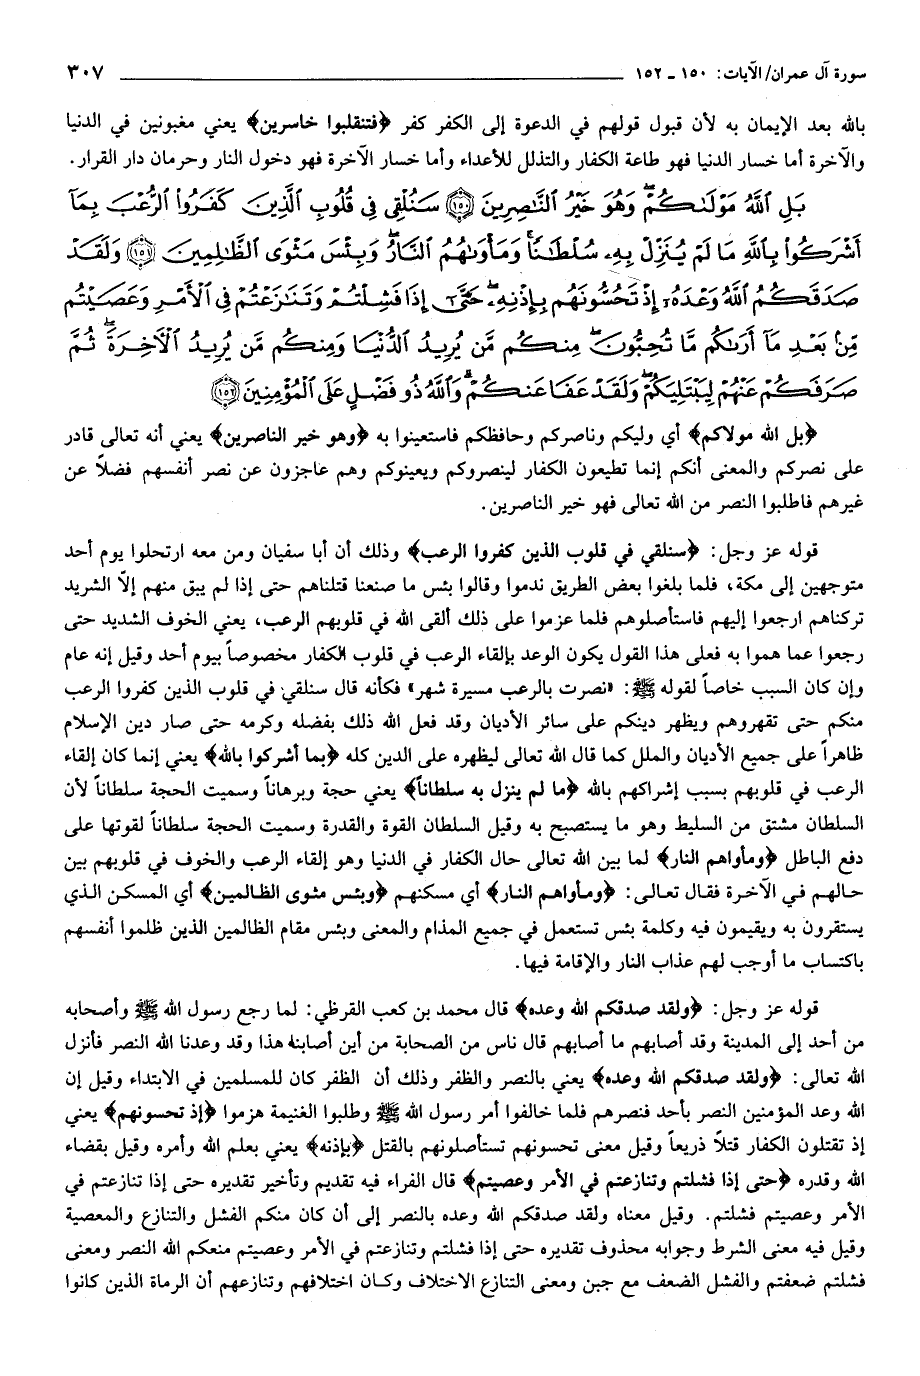 سورة آل عمران/ الآيات: ١٥٠ ـ ١٥٢ ٣٠٧
بالله بعد الإيمان به لأن قبول قولهم في الدعوة إلى الكفر كفر ﴿فتنقلبوا خاسرين﴾ يعني مغبونين في الدنيا
والآخرة أما خسار الدنيا فهو طاعة الكفار والتذلل للأعداء وأما خسار الآخرة فهو دخول النار وحرمان دار القرار.
بَلِ ٱللَّهُ مَوْلَىٰكُمْ ۖ وَهُوَ خَيْرُ ٱلنَّٰصِرِينَ ﴿١٥٠﴾ سَنُلْقِى فِى قُلُوبِ ٱلَّذِينَ كَفَرُوا۟ ٱلرُّعْبَ بِمَآ
أَشْرَكُوا۟ بِٱللَّهِ مَا لَمْ يُنَزِّلْ بِهِۦ سُلْطَٰنًا ۖ وَمَأْوَىٰهُمُ ٱلنَّارُ ۚ وَبِئْسَ مَثْوَى ٱلظَّٰلِمِينَ ﴿١٥١﴾ وَلَقَدْ
صَدَقَكُمُ ٱللَّهُ وَعْدَهُۥٓ إِذْ تَحُسُّونَهُم بِإِذْنِهِۦ ۖ حَتَّىٰٓ إِذَا فَشِلْتُمْ وَتَنَٰزَعْتُمْ فِى ٱلْأَمْرِ وَعَصَيْتُم
مِّنۢ بَعْدِ مَآ أَرَىٰكُم مَّا تُحِبُّونَ ۚ مِنكُم مَّن يُرِيدُ ٱلدُّنْيَا وَمِنكُم مَّن يُرِيدُ ٱلْءَاخِرَةَ ۚ ثُمَّ
صَرَفَكُمْ عَنْهُمْ لِيَبْتَلِيَكُمْ ۖ وَلَقَدْ عَفَا عَنكُمْ ۗ وَٱللَّهُ ذُو فَضْلٍ عَلَى ٱلْمُؤْمِنِينَ ﴿١٥٢﴾
﴿بل الله مولاكم﴾ أي وليكم وناصركم وحافظكم فاستعينوا به ﴿وهو خير الناصرين﴾ يعني أنه تعالى قادر
على نصركم والمعنى أنكم إنما تطيعون الكفار لينصروكم ويعينوكم وهم عاجزون عن نصر أنفسهم فضلاً عن
غيرهم فاطلبوا النصر من الله تعالى فهو خير الناصرين.
قوله عز وجل: ﴿سنلقي في قلوب الذين كفروا الرعب﴾ وذلك أن أبا سفيان ومن معه ارتحلوا يوم أحد
متوجهين إلى مكة، فلما بلغوا بعض الطريق ندموا وقالوا بئس ما صنعنا قتلناهم حتى إذا لم يبق منهم إلاّ الشريد
تركناهم ارجعوا إليهم فاستأصلوهم فلما عزموا على ذلك ألقى الله في قلوبهم الرعب، يعني الخوف الشديد حتى
رجعوا عما هموا به فعلى هذا القول يكون الوعد بإلقاء الرعب في قلوب الكفار مخصوصاً بيوم أحد وقيل إنه عام
وإن كان السبب خاصاً لقوله ﷺ: «نصرت بالرعب مسيرة شهر» فكأنه قال سنلقي في قلوب الذين كفروا الرعب
منكم حتى تقهروهم ويظهر دينكم على سائر الأديان وقد فعل الله ذلك بفضله وكرمه حتى صار دين الإسلام
ظاهراً على جميع الأديان والملل كما قال الله تعالى ليظهره على الدين كله ﴿بما أشركوا بالله﴾ يعني إنما كان إلقاء
الرعب في قلوبهم بسبب إشراكهم بالله ﴿ما لم ينزل به سلطاناً﴾ يعني حجة وبرهاناً وسميت الحجة سلطاناً لأن
السلطان مشتق من السليط وهو ما يستصبح به وقيل السلطان القوة والقدرة وسميت الحجة سلطاناً لقوتها على
دفع الباطل ﴿ومأواهم النار﴾ لما بين الله تعالى حال الكفار في الدنيا وهو إلقاء الرعب والخوف في قلوبهم بين
حالهم في الآخرة فقال تعالى: ﴿ومأواهم النار﴾ أي مسكنهم ﴿وبئس مثوى الظالمين﴾ أي المسكن الذي
يستقرون به ويقيمون فيه وكلمة بئس تستعمل في جميع المذام والمعنى وبئس مقام الظالمين الذين ظلموا أنفسهم
باكتساب ما أوجب لهم عذاب النار والإقامة فيها.
قوله عز وجل: ﴿ولقد صدقكم الله وعده﴾ قال محمد بن كعب القرظي: لما رجع رسول الله ﷺ وأصحابه
من أحد إلى المدينة وقد أصابهم ما أصابهم قال ناس من الصحابة من أين أصابنا هذا وقد وعدنا الله النصر فأنزل
الله تعالى: ﴿ولقد صدقكم الله وعده﴾ يعني بالنصر والظفر وذلك أن الظفر كان للمسلمين في الابتداء وقيل إن
الله وعد المؤمنين النصر بأحد فنصرهم فلما خالفوا أمر رسول الله ﷺ وطلبوا الغنيمة هزموا ﴿إذ تحسونهم﴾ يعني
إذ تقتلون الكفار قتلاً ذريعاً وقيل معنى تحسونهم تستأصلونهم بالقتل ﴿بإذنه﴾ يعني بعلم الله وأمره وقيل بقضاء
الله وقدره ﴿حتى إذا فشلتم وتنازعتم في الأمر وعصيتم﴾ قال الفراء فيه تقديم وتأخير تقديره حتى إذا تنازعتم في
الأمر وعصيتم فشلتم. وقيل معناه ولقد صدقكم الله وعده بالنصر إلى أن كان منكم الفشل والتنازع والمعصية
وقيل فيه معنى الشرط وجوابه محذوف تقديره حتى إذا فشلتم وتنازعتم في الأمر وعصيتم منعكم الله النصر ومعنى
فشلتم ضعفتم والفشل الضعف مع جبن ومعنى التنازع الاختلاف وكان اختلافهم وتنازعهم أن الرماة الذين كانوا